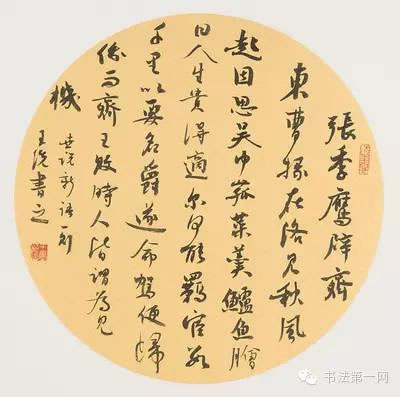 張季鷹辟齊
東曹掾在洛見秋風
起因思吳中菰菜羹鱸魚膾
曰人生貴得適尔何能羈宦數
千里以要名爵遂命駕便歸
俄而齊王敗時人皆謂為見
機
世說新語一則
王 書之
书法第一网